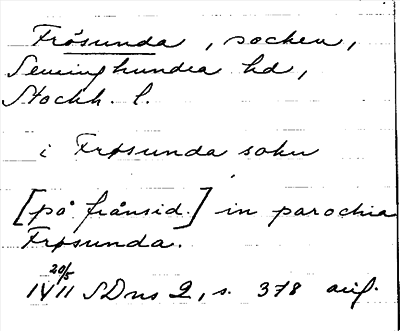 Frösunda, socken,
Seminghundra hd,
Stockh. l.
i Frøsunda sokn
[på frånsid.] in parochia
Frøsunda.
20/5
1411 SDns 2, s. 378